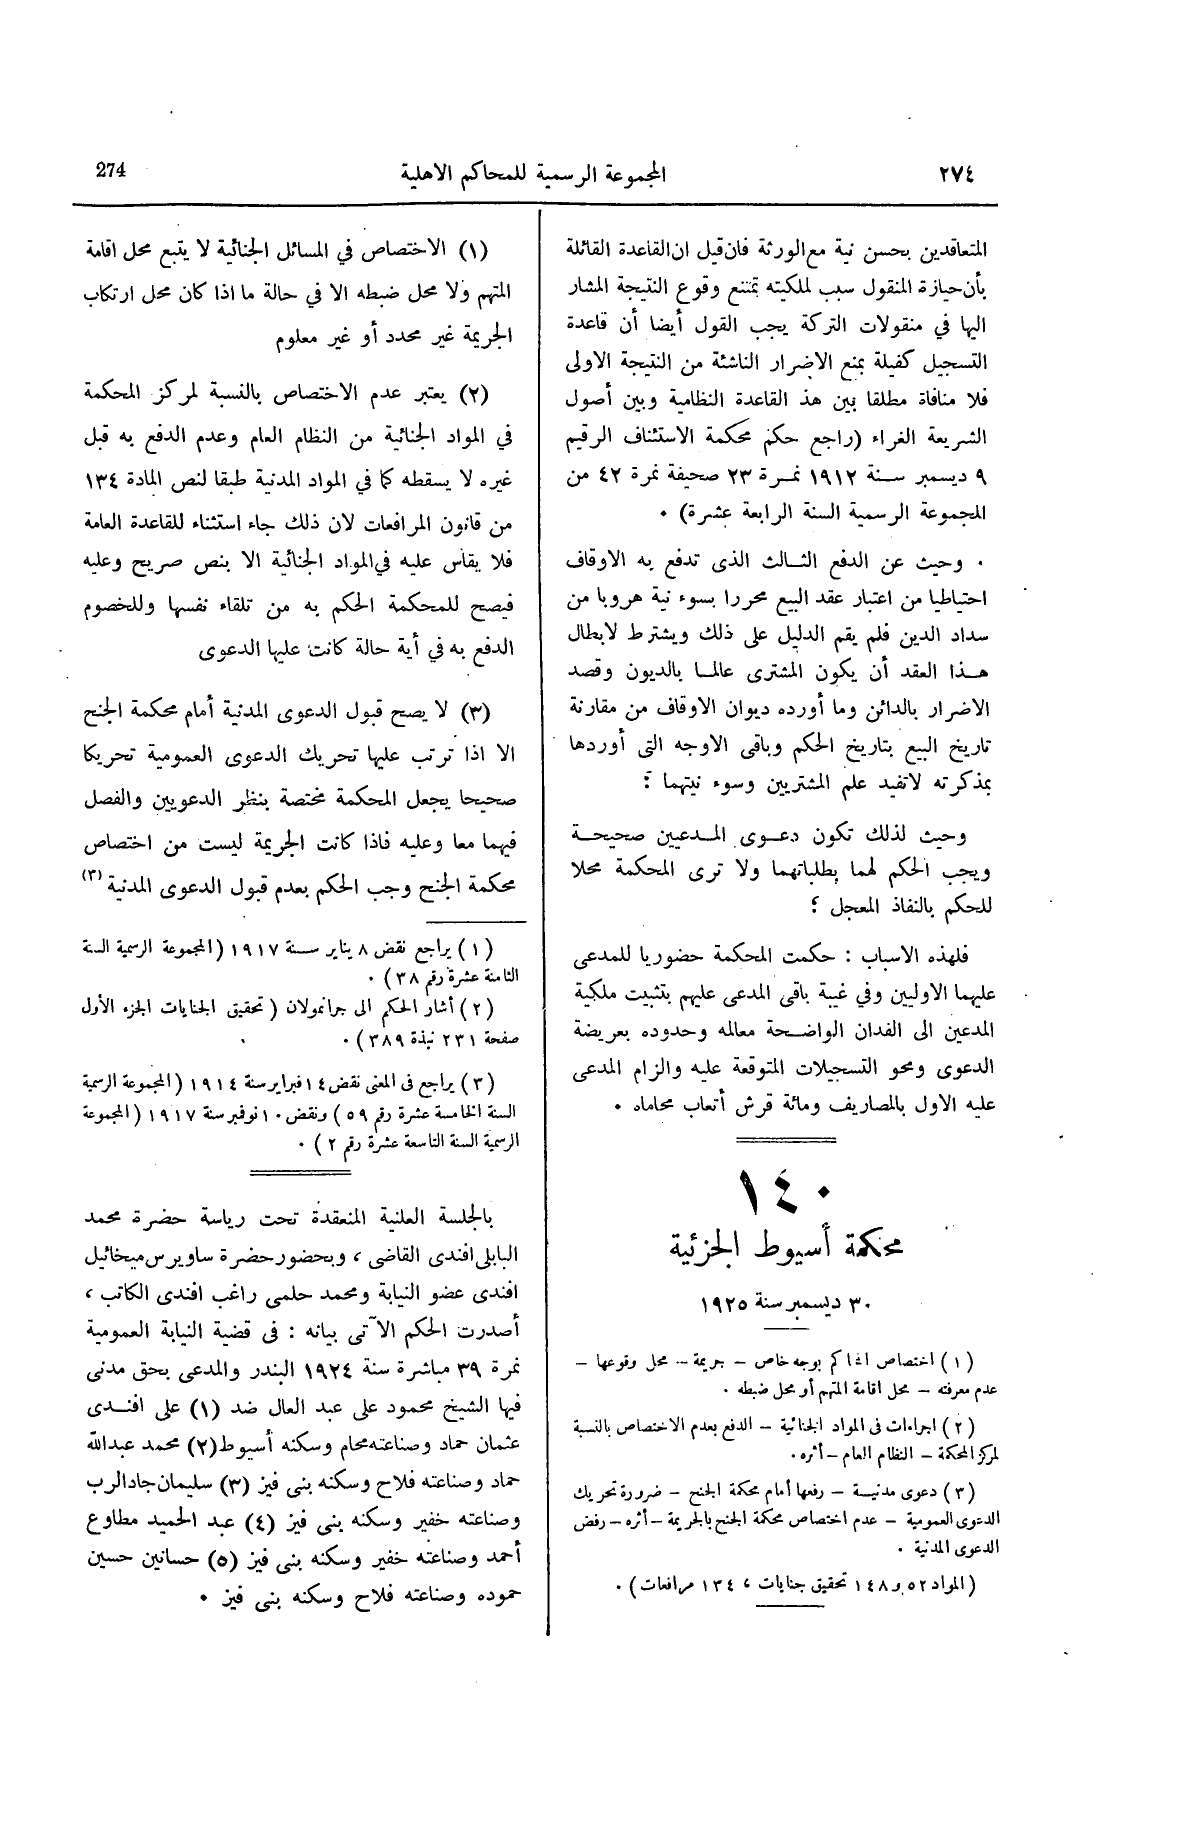 ٢٧٤
المجموعة الرسمية للمحاكم الاهلية
274
المتعاقدين بحسن نية مع الورثة فان قيل ان القاعدة القائلة
بأن حيازة المنقول سبب لملكيته تمتنع وقوع النتيجة المشار
اليها في منقولات التركة يجب القول أيضا أن قاعدة
التسجيل كفيلة بمنع الاضرار الناشئة من النتيجة الاولى
فلا منافاة مطلقا بين هذ القاعدة النظامية وبين أصول
الشريعة الغراء (راجع حكم محكمة الاستئناف الرقيم
٩ ديسمبر سنة ١٩١٢ نمرة ٢٣ صحيفة نمرة ٤٢ من
المجموعة الرسمية السنة الرابعة عشرة) ٠
وحيث عن الدفع الثالث الذى تدفع به الاوقاف
احتياطيا من اعتبار عقد البيع محررا بسوء نية هروبا من
سداد الدين فلم يقم الدليل على ذلك ويشترط لابطال
هذا العقد أن يكون المشترى عالما بالديون وقصد
الاضرار بالدائن وما أورده ديوان الاوقاف من مقارنة
تاريخ البيع بتاريخ الحكم وباقى الاوجه التى أوردها
بمذكرته لا تفيد علم المشتريين وسوء نيتهما ؛
وحيث لذلك تكون دعوى المدعيين صحيحة
ويجب الحكم لهما بطلباتهما ولا ترى المحكمة محلا
للحكم بالنفاذ المعجل ؛
فلهذه الاسباب : حكمت المحكمة حضوريا للمدعى
عليهما الاوليين وفي غيبة باقى المدعى عليهم بتثبيت ملكية
المدعين الى الفدان الواضحة معالمه وحدوده بعريضة
الدعوى ومحو التسجيلات المتوقعة عليه والزام المدعى
عليه الاول بالمصاريف ومائة قرش أتعاب محاماه ٠
١٤٠
محكمة أسيوط الجزئية
٣٠ ديسمبر سنة ١٩٢٥
(١) اختصاص المحاكم بوجه خاص – جريمة – محل وقوعها –
عدم معرفته – محل اقامة المتهم أو محل ضبطه ٠
(٢) اجراءات فى المواد الجنائية – الدفع بعدم الاختصاص بالنسبة
لمركز المحكمة – النظام العام – أثره ٠
(٣) دعوى مدنية – رفعها أمام محكمة الجنح – ضرورة تحريك
الدعوى العمومية – عدم اختصاص محكمة الجنح بالجريمة – أثره – رفض
الدعوى المدنية ٠
(المواد ٥٢ و ١٤٨ تحقيق جنايات ، ١٣٤ مرافعات) ٠
(١) الاختصاص في المسائل الجنائية لا يتبع محل اقامة
المتهم ولا محل ضبطه الا في حالة ما اذا كان محل ارتكاب
الجريمة غير محدد أو غير معلوم
(٢) يعتبر عدم الاختصاص بالنسبة لمركز المحكمة
في المواد الجنائية من النظام العام وعدم الدفع به قبل
غيره لا يسقطه كما في المواد المدنية طبقا لنص المادة ١٣٤
من قانون المرافعات لان ذلك جاء استثناء للقاعدة العامة
فلا يقاس عليه في المواد الجنائية الا بنص صريح وعليه
فيصح للمحكمة الحكم به من تلقاء نفسها وللخصوم
الدفع به في أية حالة كانت عليها الدعوى
(٣) لا يصح قبول الدعوى المدنية أمام محكمة الجنح
الا اذا ترتب عليها تحريك الدعوى العمومية تحريكا
صحيحا يجعل المحكمة مختصة بنظر الدعويين والفصل
فيهما معا وعليه فاذا كانت الجريمة ليست من اختصاص
محكمة الجنح وجب الحكم بعدم قبول الدعوى المدنية (٣)
(١) يراجع نقض ٨ يناير سنة ١٩١٧ (المجموعة الرسمية السنة
الثامنة عشرة رقم ٣٨) ٠
(٢) أشار الحكم الى جرانمولان (تحقيق الجنايات الجزء الأول
صفحة ٢٣١ نبذة ٣٨٩) ٠
(٣) يراجع فى المعنى نقض ١٤ فبراير سنة ١٩١٤ (المجموعة الرسمية
السنة الخامسة عشرة رقم ٥٩) ونقض ١٠ نوفمبر سنة ١٩١٧ (المجموعة
الرسمية السنة التاسعة عشرة رقم ٢) ٠
بالجلسة العلنية المنعقدة تحت رياسة حضرة محمد
البابلى افندى القاضى ، وبحضور حضرة ساويرس ميخائيل
افندى عضو النيابة ومحمد حلمى راغب افندى الكاتب ،
أصدرت الحكم الآتى بيانه : فى قضية النيابة العمومية
نمرة ٣٩ مباشرة سنة ١٩٢٤ البندر والمدعى بحق مدنى
فيها الشيخ محمود على عبد العال ضد (١) على افندى
عثمان حماد وصناعته محام وسكنه أسيوط (٢) محمد عبدالله
حماد وصناعته فلاح وسكنه بنى فيز (٣) سليمان جاد الرب
وصناعته خفير وسكنه بنى فيز (٤) عبد الحميد مطاوع
أحمد وصناعته خفير وسكنه بنى فيز (٥) حسانين حسين
حموده وصناعته فلاح وسكنه بنى فيز ٠